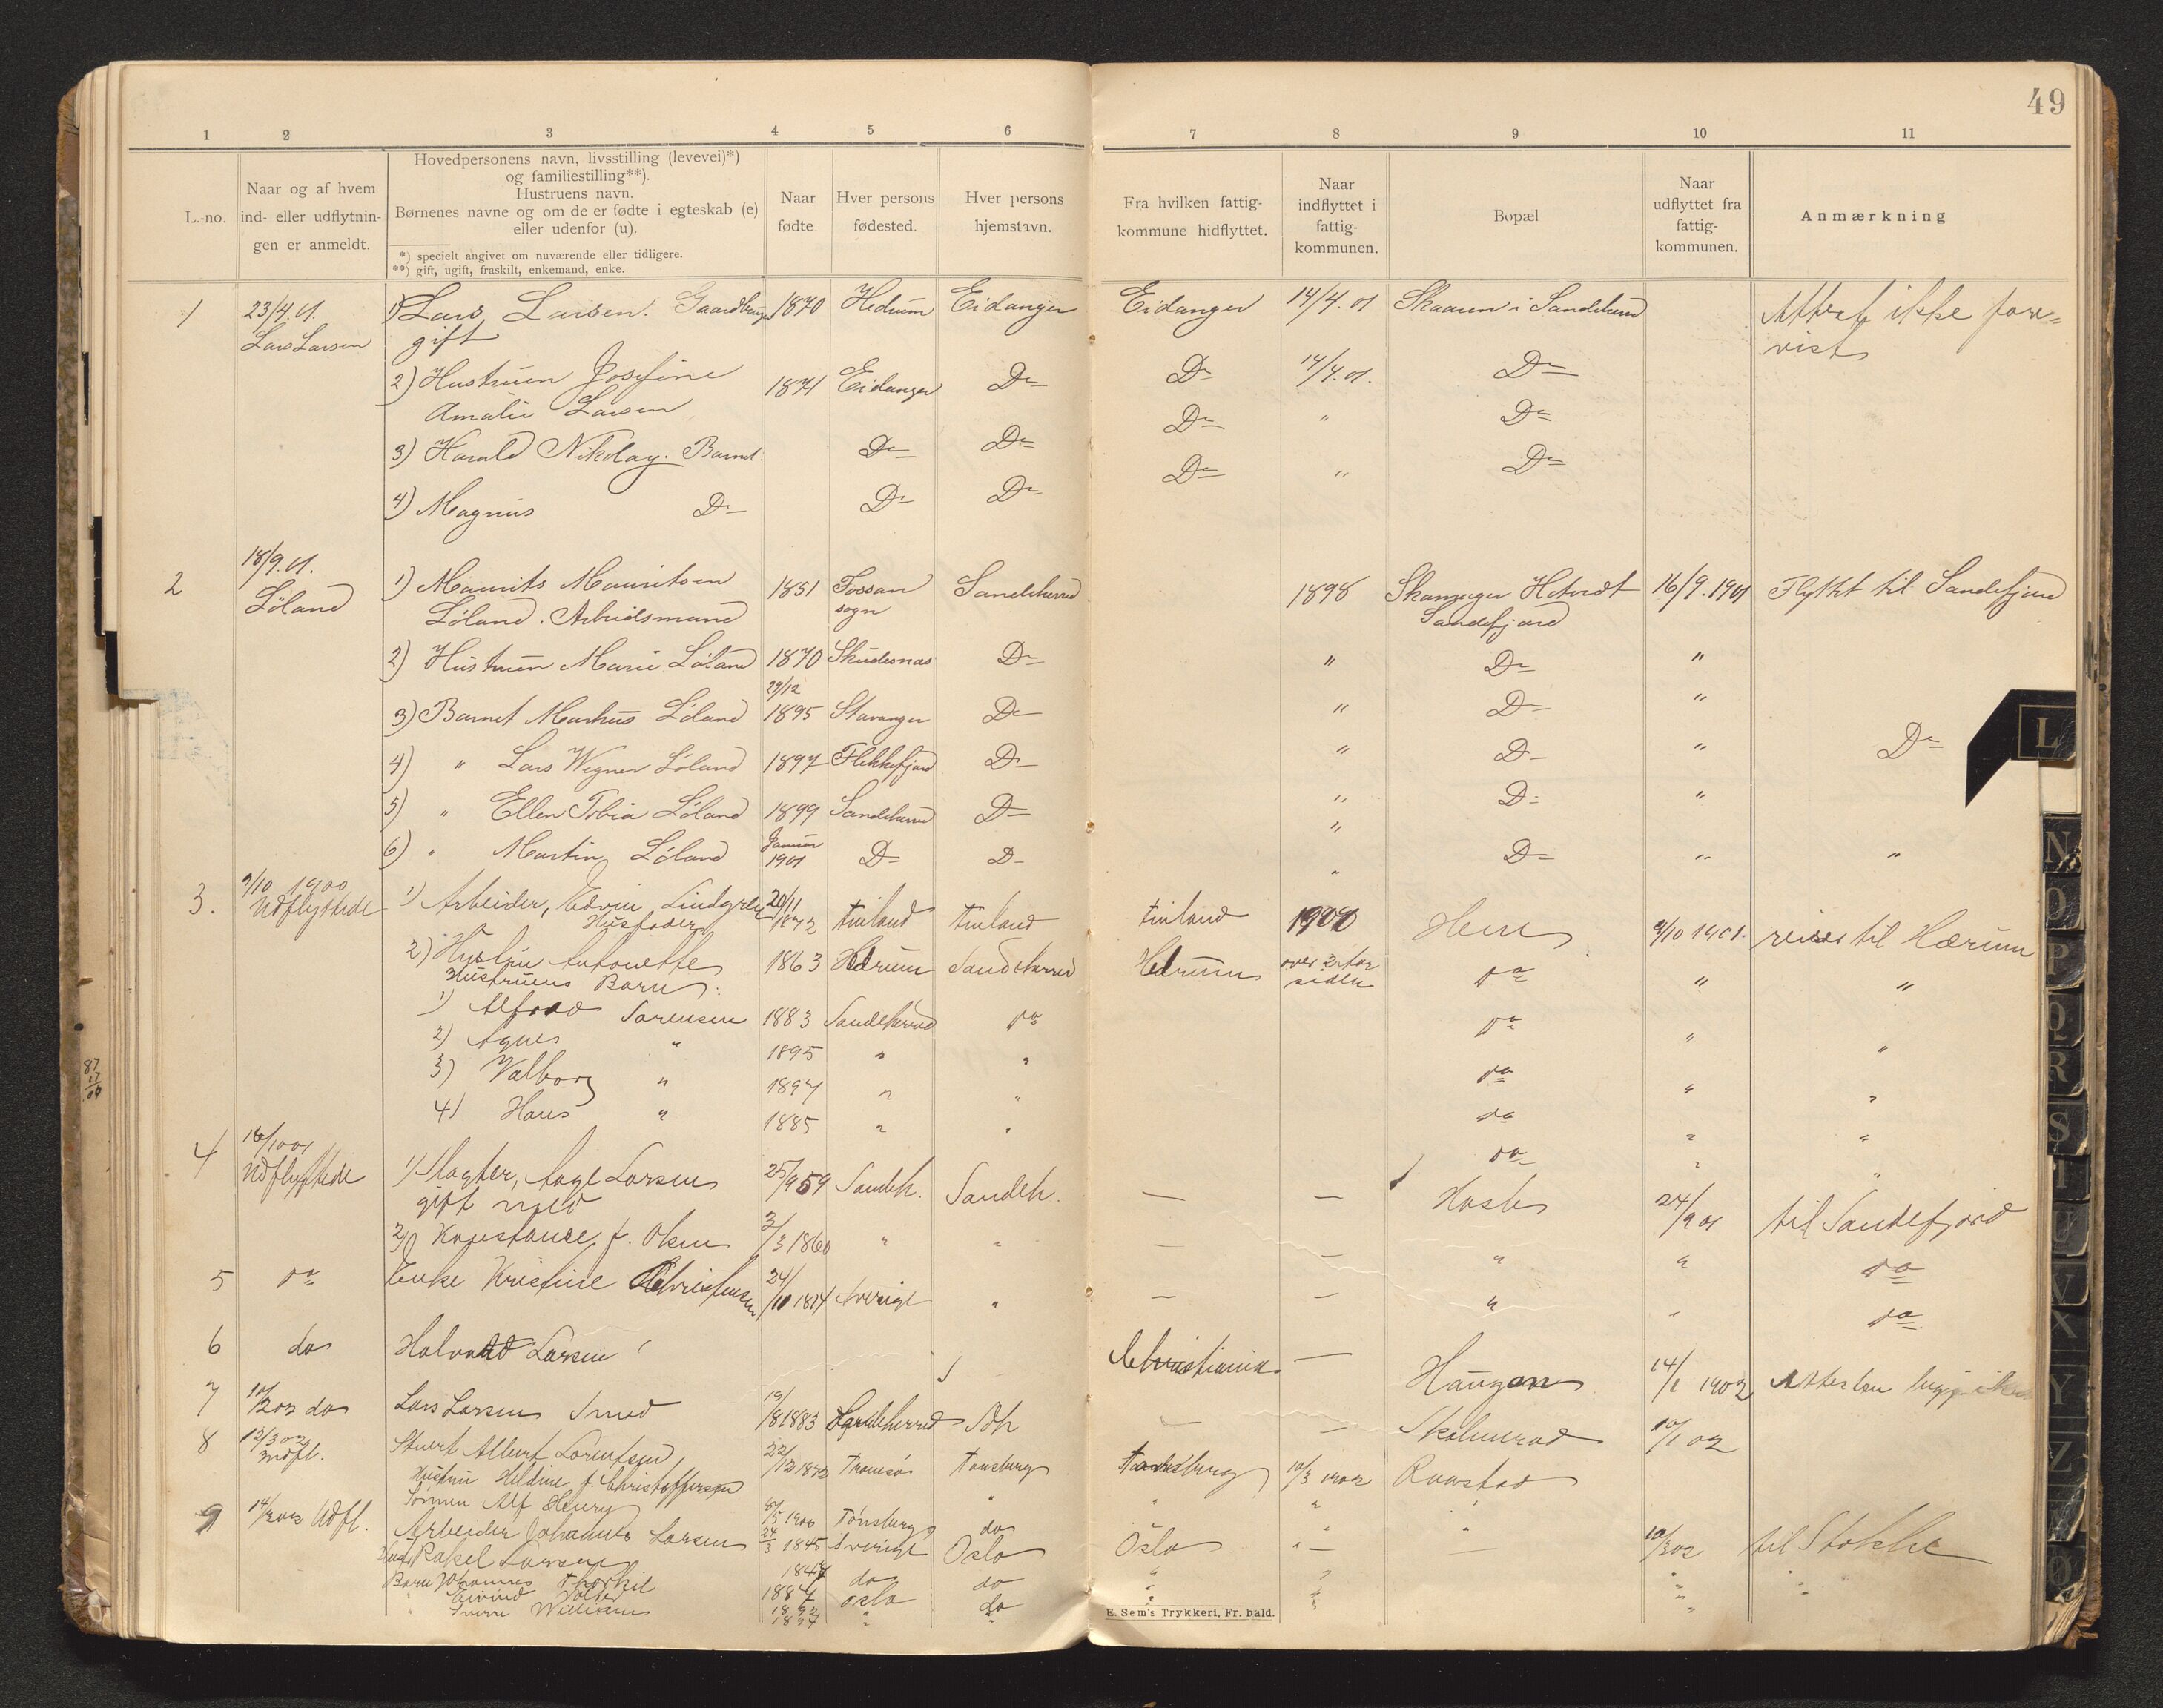 49
1 2 3 4 5 6 7 8 9 10 11
L.-no.
Naar og af hvem
ind- eller udflytnin-
gen er anmeldt.
Hovedpersonens navn, livsstilling (levevei)*)
og familiestilling**).
Hustruens navn.
Børnenes navne og om de er fødte i egteskab (e)
eller udenfor (u).
*) specielt angivet om nuværende eller tidligere.
**) gift, ugift, fraskilt, enkemand, enke.
Naar
fødte.
Hver persons
fødested.
Hver persons
hjemstavn.
Fra hvilken fattig-
kommune hidflyttet.
Naar
indflyttet i
fattig-
kommunen.
Bopæl
Naar
udflyttet fra
fattig-
kommunen.
Anmærkning
1 23/4.01. 1) Lars Larsen. Gaardbruger 1870 Hedrum Eidanger Eidanger 14/4.01 Skaaren i Sandeherred Attest ikke fore-
Lars Larsen gift vist
2) Hustruen Josefine 1871 Eidanger Do Do 14/4.01. Do
Amalie Larsen
3) Harald Nikolay. Barnet. Do Do Do " Do
4) Magnus Do Do Do Do " Do
2 18/9.01. 1) Maurits Mauritsen 1851 Fossan Sandeherred 1898 16/9.1901 Flyttet til Sandefjord
Löland Löland. Arbeidsmand sogn Sandefjord
2) Hustruen Marie Löland 1870 Skudesnæs Do " Do "
29/12
3) Barnet Markus Löland 1895 Stavanger Do " Do "
4) " Lars Wegner Löland 1897 Flekkefjord Do " Do " Do
5) " Ellen Tobia Löland 1899 Sandeherred Do " Do "
6) " Martin Löland Januar 1901 Do Do " Do " "
3. 9/10 1900 1) Arbeider, Edvin Lindgren 20/11 1872 Finland Finland Finland 1900 Hem 9/10 1901. reiser til Hedrum
Udflyttede Husfader
2) Hustru Antonette 1863 Hedrum Sandeherred Hedrum over 2 Aar siden do " "
Hustruens Barn:
1) Alfred Sørensen 1883 Sandeherred do do " "
2) Agnes " 1895 " " do " "
3) Valborg " 1897 " " do " "
4) Hans " 1885 " " do " "
4 16/10 01 1) Slagter, Aage Larsen 25/9 59 Sandeh. Sandeh. — — Hasle 24/9 01 til Sandefjord
Udflyttede gift med
2) Konstance f. Olsen 2/3 1860 " " — — " " do
5 do Enke Kristine Christensen 24/10 1814 Sverige " — — " " do
6 do Halvard Larsen Christiania — Haugen 14/1 1902
7 10/2 02 do Lars Larsen Smed 19/8 1883 Sandeherred Sdh — — 10/1 02
8 12/3 02 Stuert Albert Lorentsen 22/12 1872 Tromsø Tønsberg Tønsberg 10/3 1902
indfl. Hustru Heldine f. Christoffersen "
Sønnen Alf Henry 5/5 1900 Tønsberg do " " "
9 14/3 02 Udfl. Arbeider Johannes Larsen 24/3 1845 Sverige Oslo Oslo " — — 10/3 02 til Stokke
Hust. Rakel Larsen 1847 do do "
Barn Johannes Thorkil 1887 Oslo do "
" Eivind 1892 " "
William 1894 "
E. Sem's Trykkeri, Fr. hald.
L
N
O
P
Q
R
S
T
U
V
X
Y
Z
Ø